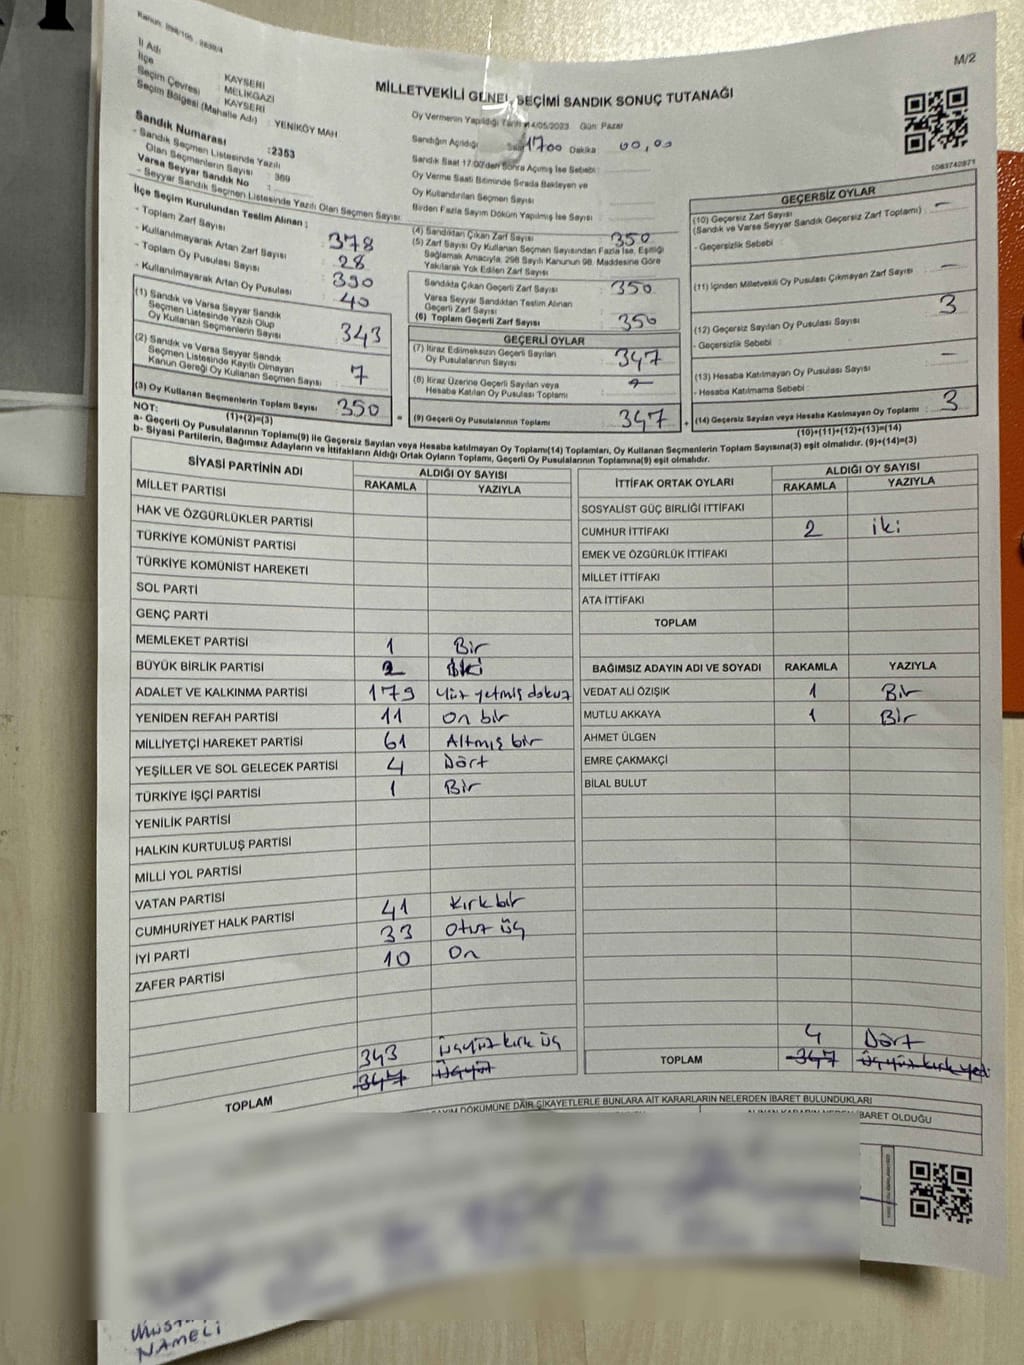 Kanun: 298/105 - 2839/4
M/2
İl Adı : KAYSERİ
İlçe : MELİKGAZİ
Seçim Çevresi : KAYSERİ
Seçim Bölgesi (Mahalle Adı) : YENİKÖY MAH
MİLLETVEKİLİ GENEL SEÇİMİ SANDIK SONUÇ TUTANAĞI
Oy Vermenin Yapıldığı Tarih 14/05/2023 Gün: Pazar
Sandığın Açıldığı Saat 1700 Dakika : 00,00
Sandık Saat 17:00'den Sonra Açılmış İse Sebebi :
Oy Verme Saati Bitiminde Sırada Bekleyen ve
Oy Kullandırılan Seçmen Sayısı :
Birden Fazla Sayım Döküm Yapılmış İse Sayısı :
1083742871
Sandık Numarası : 2353
- Sandık Seçmen Listesinde Yazılı
Olan Seçmenlerin Sayısı : 369
Varsa Seyyar Sandık No :
- Seyyar Sandık Seçmen Listesinde Yazılı Olan Seçmen Sayısı:
İlçe Seçim Kurulundan Teslim Alınan :
- Toplam Zarf Sayısı : 378
- Kullanılmayarak Artan Zarf Sayısı : 28
- Toplam Oy Pusulası Sayısı : 390
- Kullanılmayarak Artan Oy Pusulası : 40
(1) Sandık ve Varsa Seyyar Sandık
Seçmen Listesinde Yazılı Olup
Oy Kullanan Seçmenlerin Sayısı : 343
(2) Sandık ve Varsa Seyyar Sandık
Seçmen Listesinde Kayıtlı Olmayan
Kanun Gereği Oy Kullanan Seçmen Sayısı : 7
(3) Oy Kullanan Seçmenlerin Toplam Sayısı : 350
(1)+(2)=(3)
(4) Sandıktan Çıkan Zarf Sayısı : 350
(5) Zarf Sayısı Oy Kullanan Seçmen Sayısından Fazla İse, Eşitliği
Sağlamak Amacıyla, 298 Sayılı Kanunun 98. Maddesine Göre
Yakılarak Yok Edilen Zarf Sayısı :
Sandıkta Çıkan Geçerli Zarf Sayısı : 350
Varsa Seyyar Sandıktan Teslim Alınan
Geçerli Zarf Sayısı :
(6) Toplam Geçerli Zarf Sayısı : 350
GEÇERLİ OYLAR
(7) İtiraz Edilmeksizin Geçerli Sayılan
Oy Pusulalarının Sayısı : 347
(8) İtiraz Üzerine Geçerli Sayılan veya
Hesaba Katılan Oy Pusulası Toplamı :
= (9) Geçerli Oy Pusulalarının Toplamı : 347 +
GEÇERSİZ OYLAR
(10) Geçersiz Zarf Sayısı : -
(Sandık ve Varsa Seyyar Sandık Geçersiz Zarf Toplamı)
- Geçersizlik Sebebi :
(11) İçinden Milletvekili Oy Pusulası Çıkmayan Zarf Sayısı : -
(12) Geçersiz Sayılan Oy Pusulası Sayısı : 3
- Geçersizlik Sebebi :
(13) Hesaba Katılmayan Oy Pusulası Sayısı : -
- Hesaba Katılmama Sebebi :
(14) Geçersiz Sayılan veya Hesaba Katılmayan Oy Toplamı : 3
(10)+(11)+(12)+(13)=(14)
NOT:
a- Geçerli Oy Pusulalarının Toplamı(9) ile Geçersiz Sayılan veya Hesaba katılmayan Oy Toplamı(14) Toplamları, Oy Kullanan Seçmenlerin Toplam Sayısına(3) eşit olmalıdır. (9)+(14)=(3)
b- Siyasi Partilerin, Bağımsız Adayların ve İttifakların Aldığı Ortak Oyların Toplamı, Geçerli Oy Pusulalarının Toplamına(9) eşit olmalıdır.
SİYASİ PARTİNİN ADI ALDIĞI OY SAYISI
RAKAMLA YAZIYLA
MİLLET PARTİSİ
HAK VE ÖZGÜRLÜKLER PARTİSİ
TÜRKİYE KOMÜNİST PARTİSİ
TÜRKİYE KOMÜNİST HAREKETİ
SOL PARTİ
GENÇ PARTİ
MEMLEKET PARTİSİ 1 Bir
BÜYÜK BİRLİK PARTİSİ 2 İki
ADALET VE KALKINMA PARTİSİ 179 Yüz yetmiş dokuz
YENİDEN REFAH PARTİSİ 11 On bir
MİLLİYETÇİ HAREKET PARTİSİ 61 Altmış bir
YEŞİLLER VE SOL GELECEK PARTİSİ 4 Dört
TÜRKİYE İŞÇİ PARTİSİ 1 Bir
YENİLİK PARTİSİ
HALKIN KURTULUŞ PARTİSİ
MİLLİ YOL PARTİSİ
VATAN PARTİSİ
CUMHURİYET HALK PARTİSİ 41 Kırk bir
İYİ PARTİ 33 Otuz üç
ZAFER PARTİSİ 10 On
343 Üçyüz kırk üç
TOPLAM 347 Üçyüz
İTTİFAK ORTAK OYLARI ALDIĞI OY SAYISI
RAKAMLA YAZIYLA
SOSYALİST GÜÇ BİRLİĞİ İTTİFAKI
CUMHUR İTTİFAKI 2 iki
EMEK VE ÖZGÜRLÜK İTTİFAKI
MİLLET İTTİFAKI
ATA İTTİFAKI
TOPLAM
BAĞIMSIZ ADAYIN ADI VE SOYADI RAKAMLA YAZIYLA
VEDAT ALİ ÖZIŞIK 1 Bir
MUTLU AKKAYA 1 Bir
AHMET ÜLGEN
EMRE ÇAKMAKÇİ
BİLAL BULUT
4 Dört
TOPLAM 347 Üçyüz kırk yedi
DÖKÜMÜNE DAİR ŞİKAYETLERLE BUNLARA AİT KARARLARIN NELERDEN İBARET BULUNDUKLARI
İBARET OLDUĞU
NAMELİ